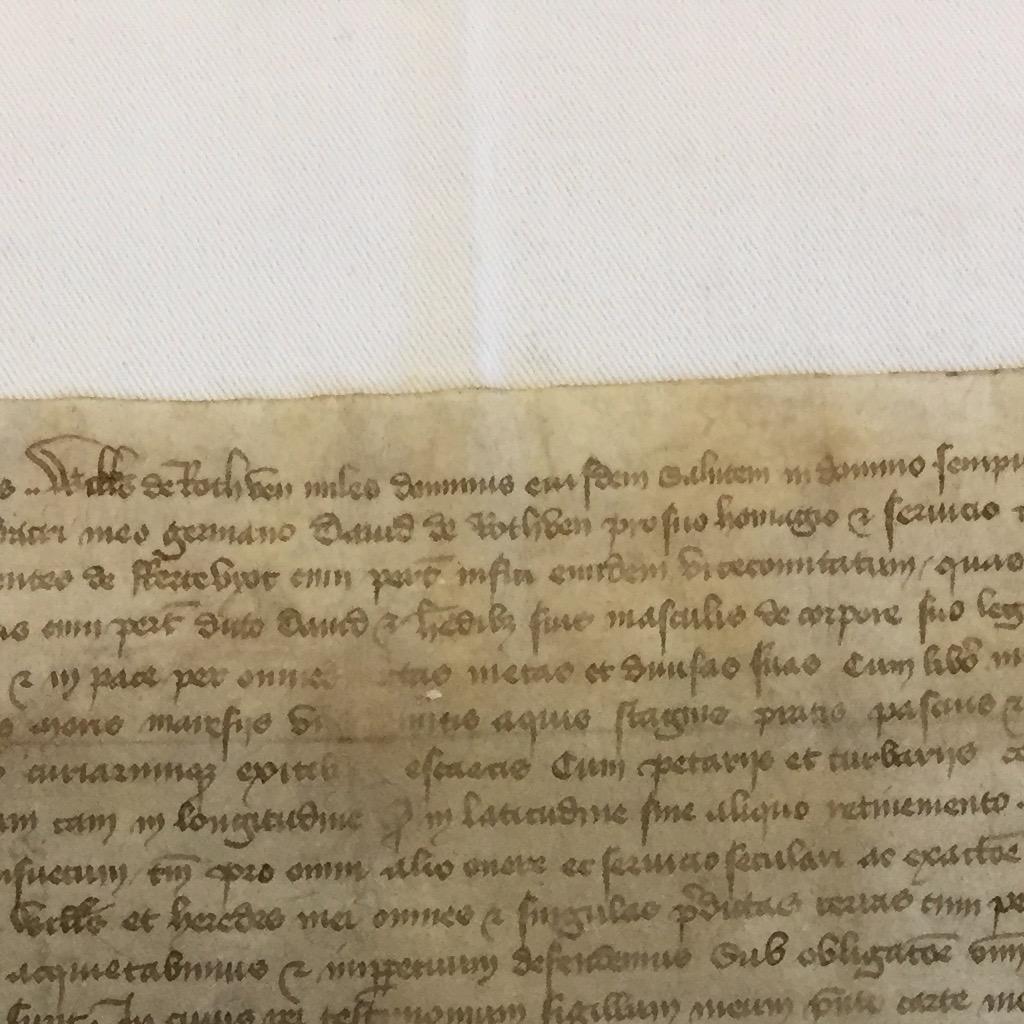 Willms de Rothven miles dominus eiusdem Salutem in domino sempi
fratri meo germano Dauid de Rothven pro suo homagio & seruicio
de cum pert infra eiusdem vicecomitatum quas
cum pert dicto Dauid & hedibz suis masculis de corpore suo leg
& in pace per omnes metas et diuisas suas Cum libo in
moris aquis stagnis pratis pascuis &
curiarumqz exitib escaetis Cum petarijs et turbarijs
tam in longitudine in latitudine sine aliquo retinemento
tm pro omni alio onere et seruicio seculari ac exactoe
Willms et heredes mei omnes & singulas pdictas terras cum pe
acquietabimus & imppetuum defendemus Sub obligatoe
In cuius rei testimonium sigillum meum pnti carte me